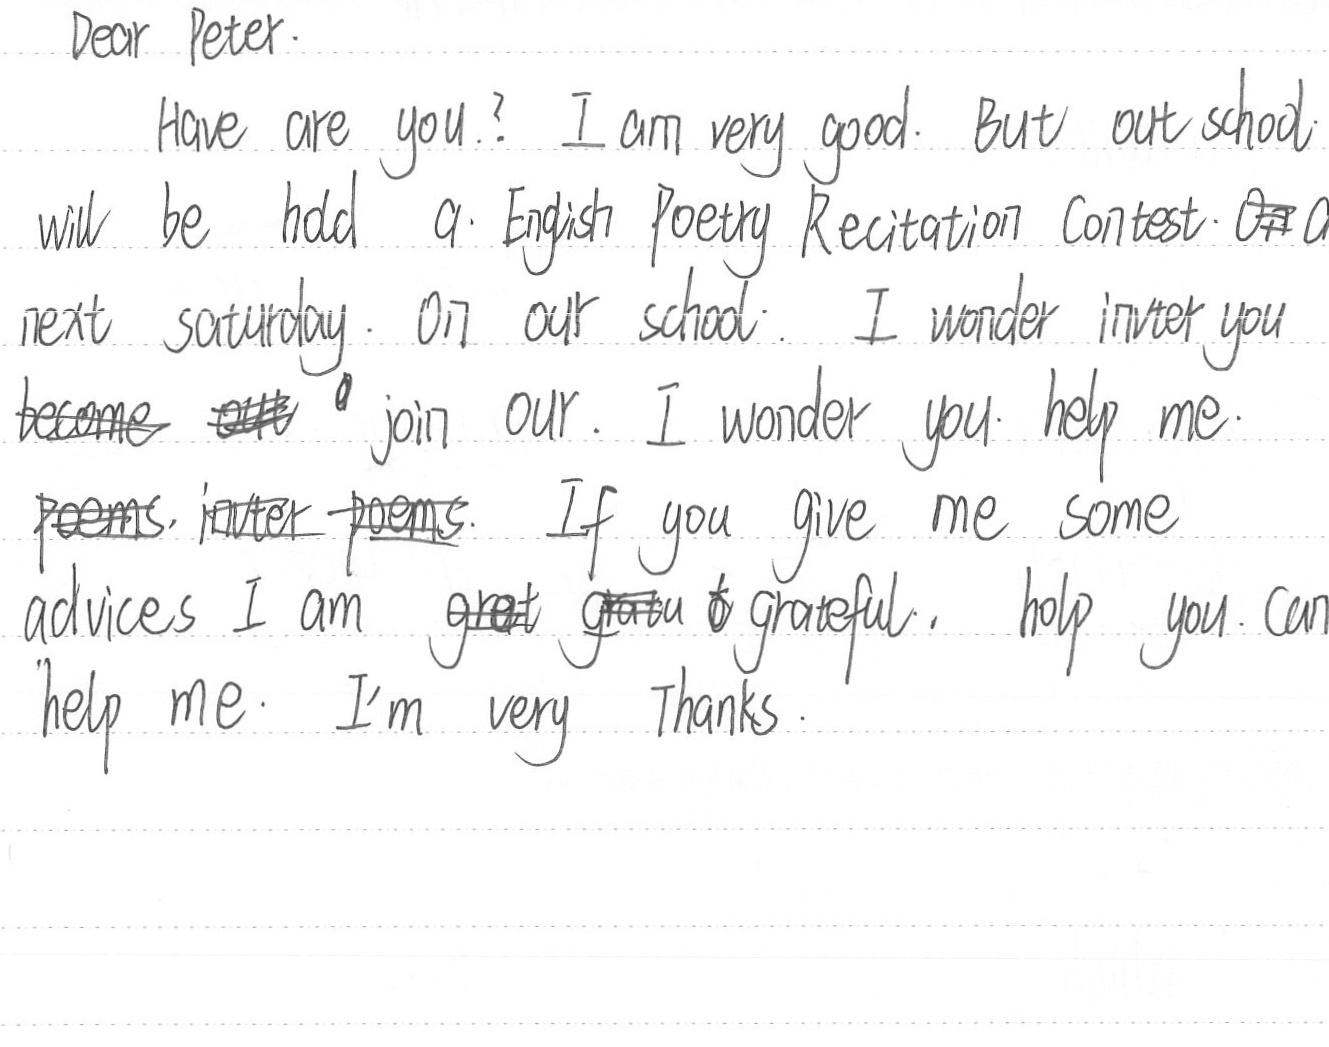 Dear Peter.
Have are you? I am very good. But out school
will be hold a English Poetry Recitation Contest.
next saturday. On our school. I wonder invter you
join our. I wonder you help me.
If you give me some
advices I am grateful. holp you can
help me. I'm very Thanks.